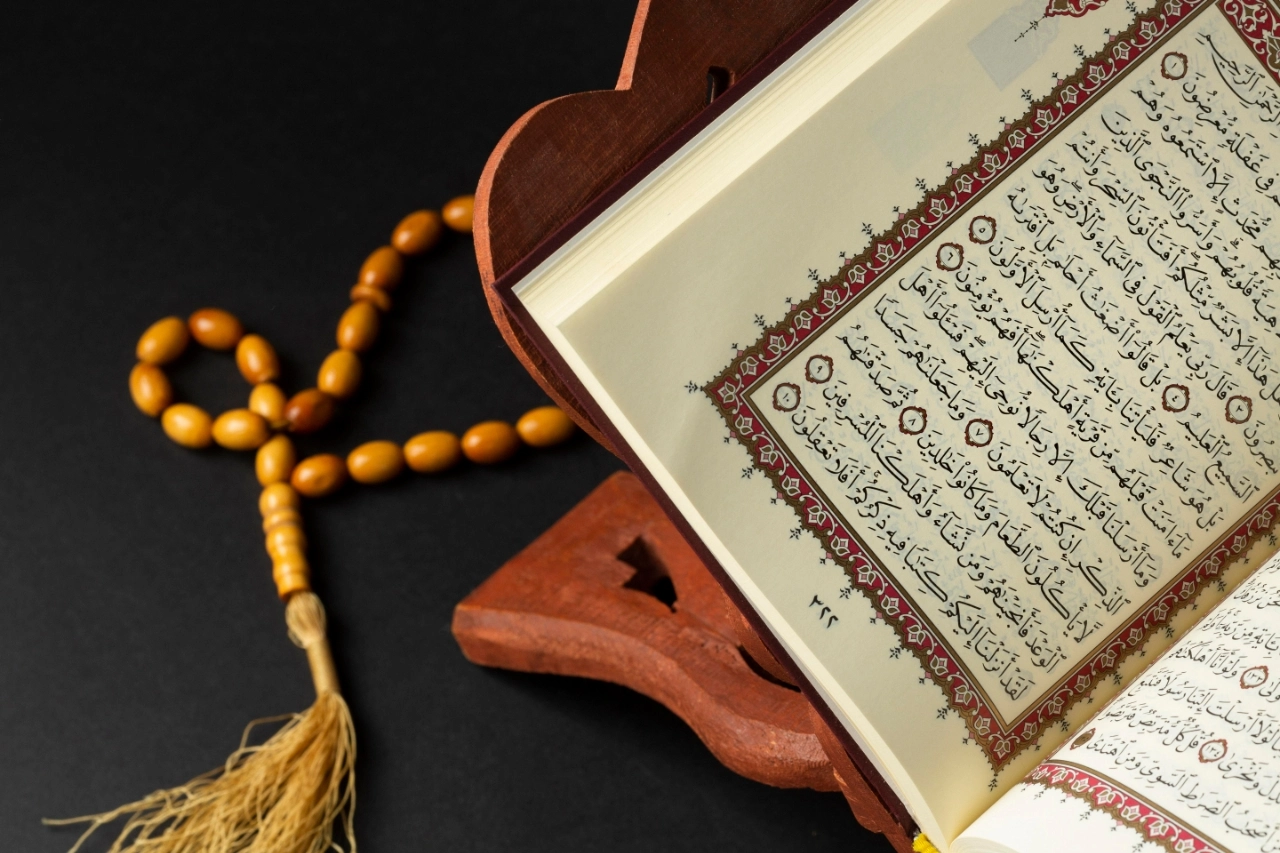 ٱلرَّحْمَٰنِ ٱلرَّحِيمِ
فِى غَفْلَةٍ مُّعْرِضُونَ ١
مُّحْدَثٍ إِلَّا ٱسْتَمَعُوهُ وَهُمْ
قُلُوبُهُمْ وَأَسَرُّوا۟ ٱلنَّجْوَى ٱلَّذِينَ
هَلْ هَٰذَآ إِلَّا بَشَرٌ مِّثْلُكُمْ أَفَتَأْتُونَ ٱلسِّحْرَ وَأَنتُمْ
تُبْصِرُونَ ٣ قَالَ رَبِّى يَعْلَمُ ٱلْقَوْلَ فِى ٱلسَّمَآءِ وَٱلْأَرْضِ وَهُوَ
ٱلسَّمِيعُ ٱلْعَلِيمُ ٤ بَلْ قَالُوٓا۟ أَضْغَٰثُ أَحْلَٰمٍ بَلِ ٱفْتَرَىٰهُ
بَلْ هُوَ شَاعِرٌ فَلْيَأْتِنَا بِـَٔايَةٍ كَمَآ أُرْسِلَ ٱلْأَوَّلُونَ ٥
مَآ ءَامَنَتْ قَبْلَهُم مِّن قَرْيَةٍ أَهْلَكْنَٰهَآ أَفَهُمْ يُؤْمِنُونَ ٦
وَمَآ أَرْسَلْنَا قَبْلَكَ إِلَّا رِجَالًا نُّوحِىٓ إِلَيْهِمْ فَسْـَٔلُوٓا۟ أَهْلَ
ٱلذِّكْرِ إِن كُنتُمْ لَا تَعْلَمُونَ ٧ وَمَا جَعَلْنَٰهُمْ جَسَدًا
لَّا يَأْكُلُونَ ٱلطَّعَامَ وَمَا كَانُوا۟ خَٰلِدِينَ ٨ ثُمَّ صَدَقْنَٰهُمُ
ٱلْوَعْدَ فَأَنجَيْنَٰهُمْ وَمَن نَّشَآءُ وَأَهْلَكْنَا ٱلْمُسْرِفِينَ ٩
لَقَدْ أَنزَلْنَآ إِلَيْكُمْ كِتَٰبًا فِيهِ ذِكْرُكُمْ أَفَلَا تَعْقِلُونَ ١٠
٣٢٢
مِّن رَّبِّهِ
١٣٣ وَلَوْ أَنَّآ أَهْلَكْنَٰهُم
لَوْلَآ أَرْسَلْتَ إِلَيْنَا رَسُولًا فَنَتَّبِعَ
وَنَخْزَىٰ ١٣٤ قُلْ كُلٌّ مُّتَرَبِّصٌ فَتَرَبَّصُوا۟
أَصْحَٰبُ ٱلصِّرَٰطِ ٱلسَّوِىِّ وَمَنِ ٱهْتَدَىٰ